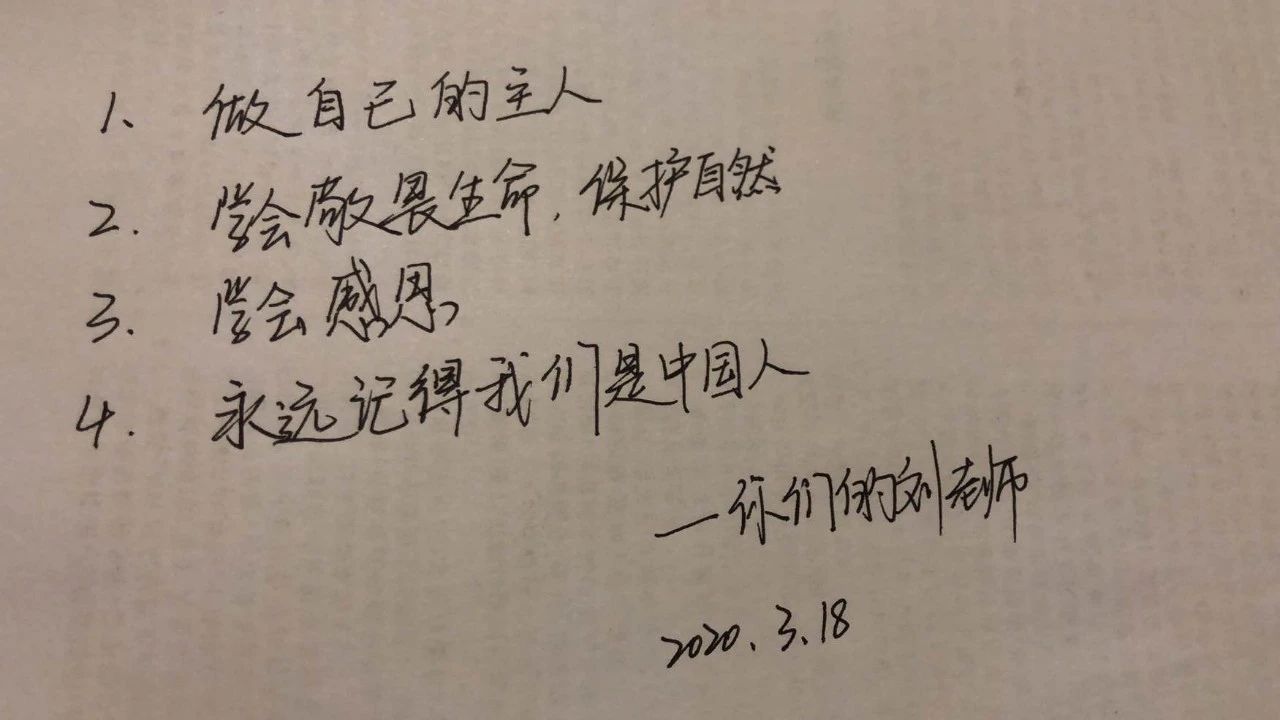 1、 做自己的主人
2. 学会敬畏生命，保护自然
3. 学会感恩
4. 永远记得我们是中国人
—你们的刘老师
2020.3.18